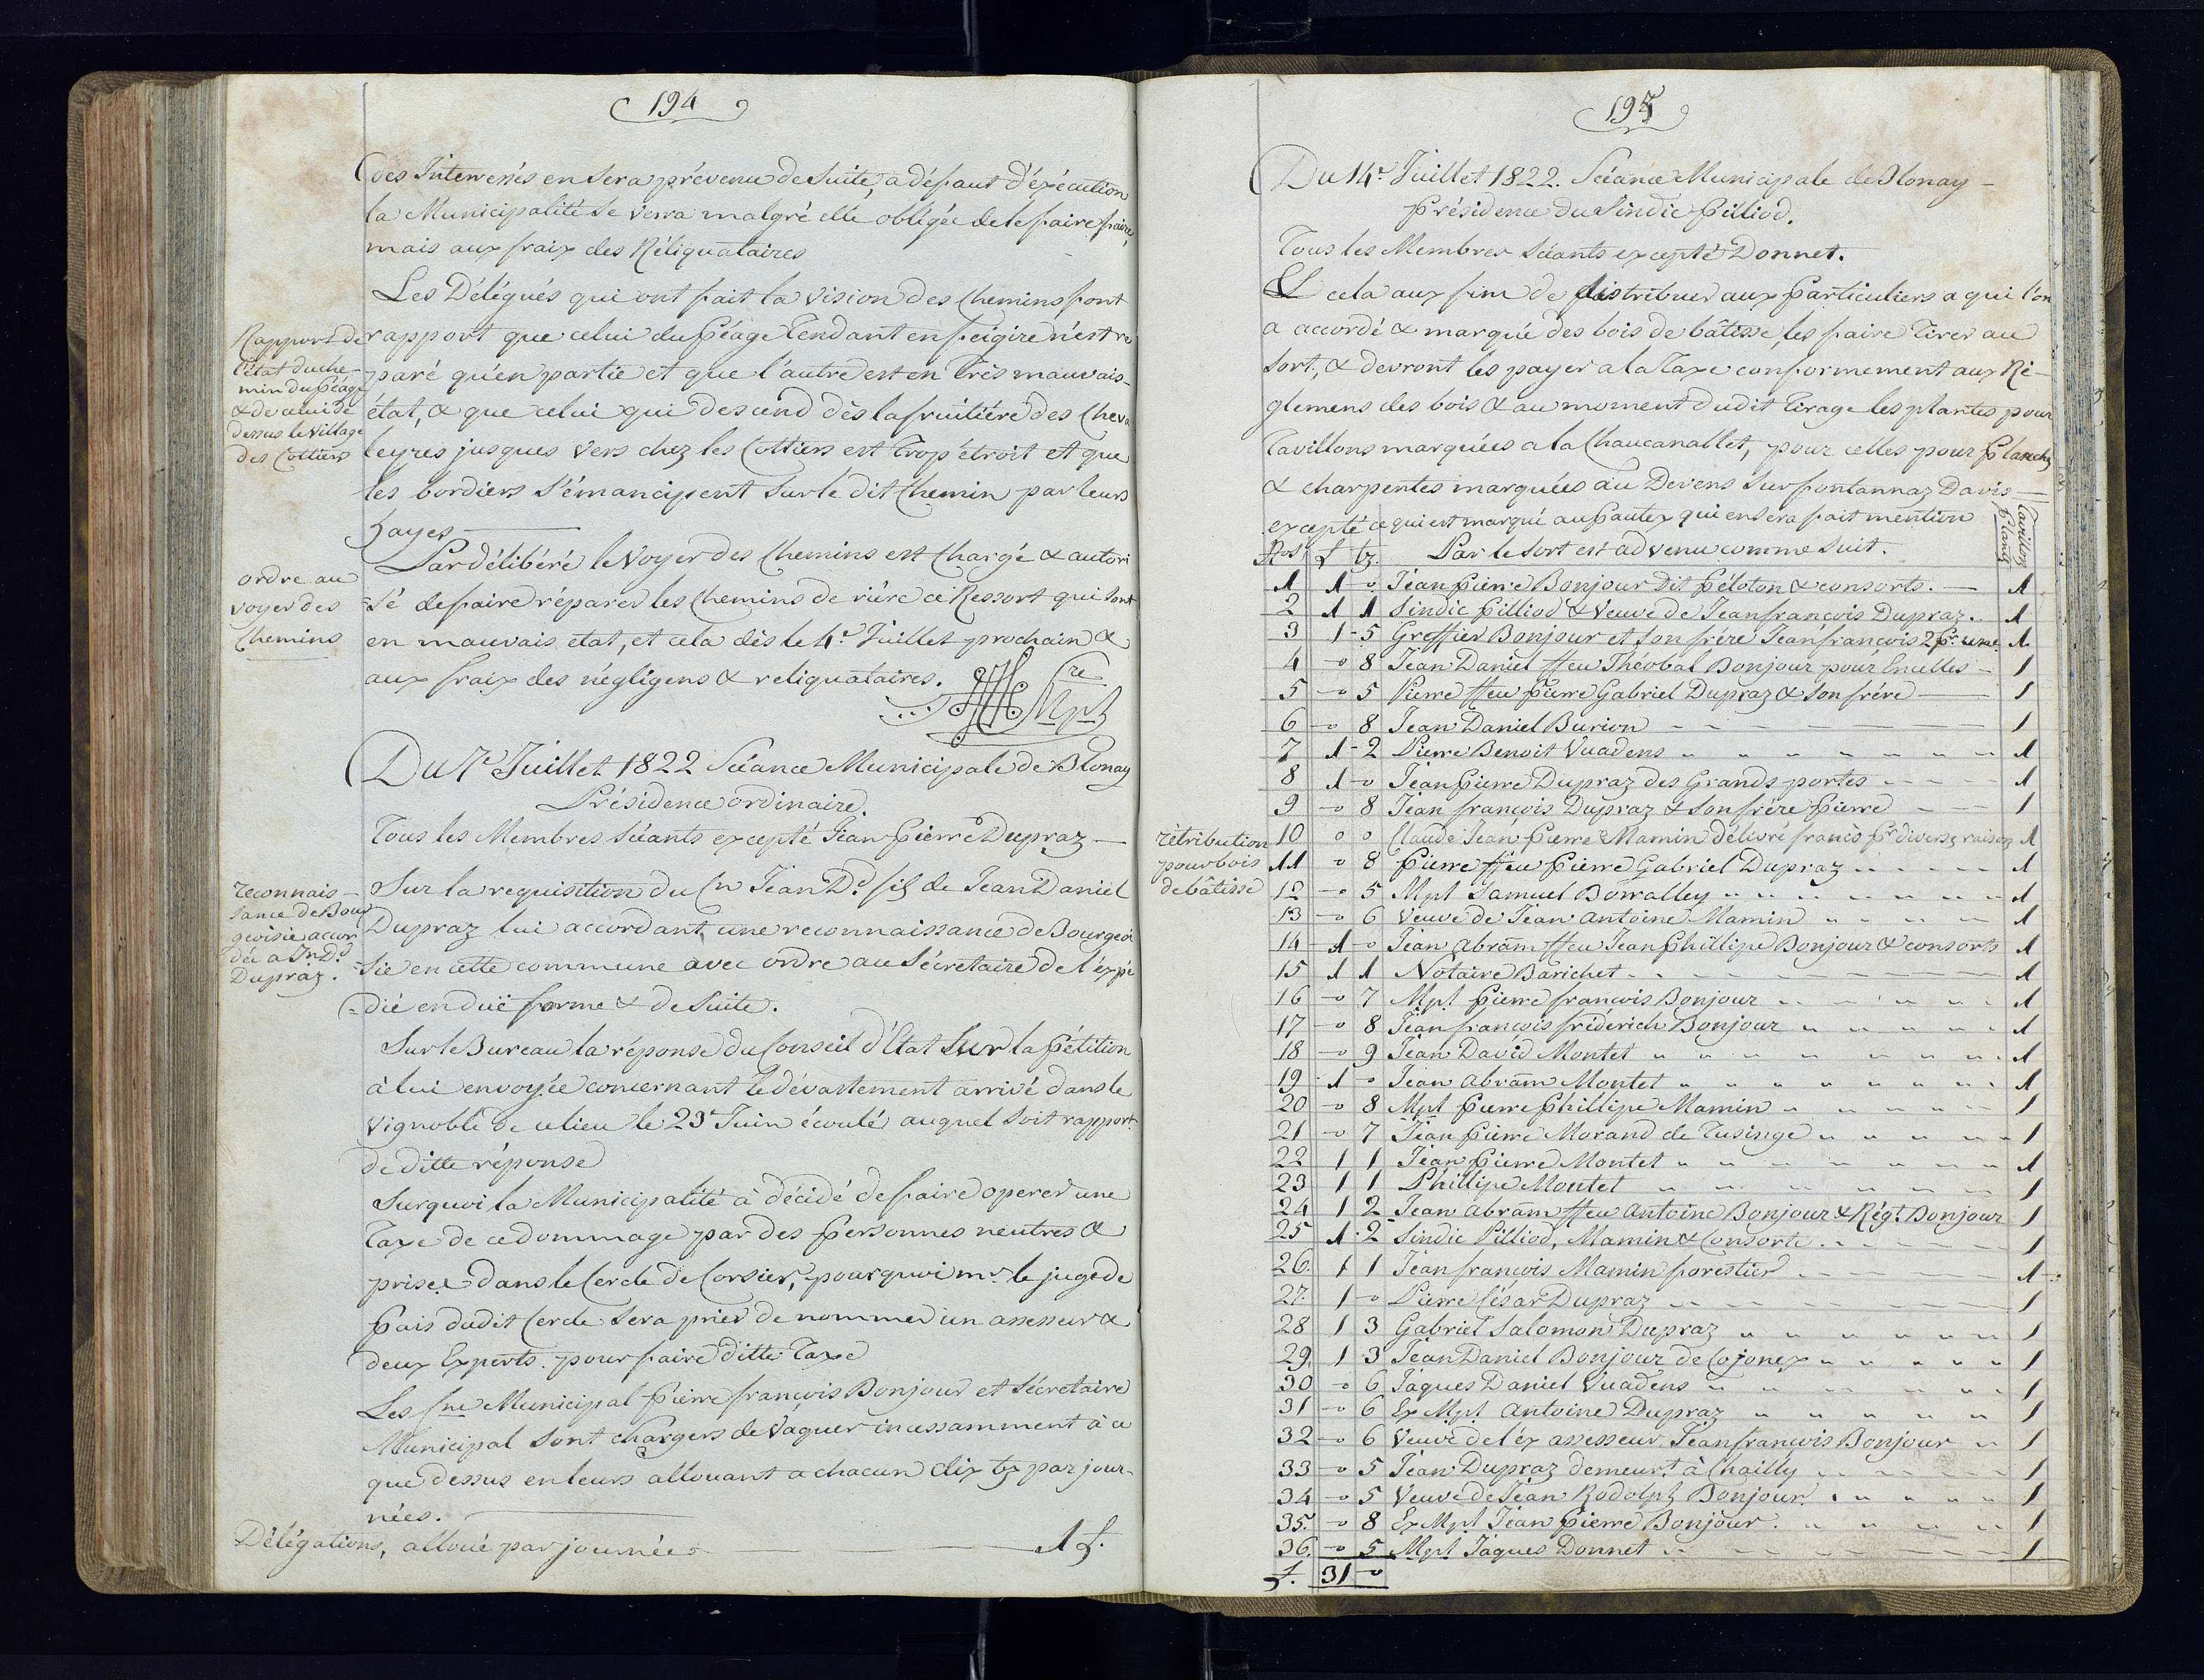 194
des Interressés en sera prévenu de suite, a défaut d'éxécution
la Municipalité se verra malgré elle obligée de le faire faire,
mais aux fraix des Réliquataires
Les Délégués qui ont fait la vision des Chemins font
Rapport de
l'état du che-
min du Péage
& de celui de
dessus le Village
des Cottiers
rapport que celui du Péage tendant en feigire n'est ré
paré qu'en partie et que l'autre est en très mauvais
état, & que celui qui descend dès la fruitière des Cheva
leyres jusques vers chez les Cottiers est trop étroit et que
les bordiers s'émancipent sur le dit Chemin par leurs
hayes
ordre au
voyer des
Chemins
Par délibéré le Voyer des Chemins est Chargé & autori
sé de faire réparer les Chemins de rière ce Ressort qui sont
en mauvais etat, et cela dès le 4e Juillet prochain &
aux fraix des négligens & reliquataires.
Du 7e Juillet 1822 Séance Municipale de Blonay
Présidence ordinaire.
Tous les Membres séants excepté Jean Pierre Dupraz
reconnais-
sance de Bour
geoisie accor
dée a Jn Dl
Dupraz.
Sur la requisition du Cn Jean Dl fils de Jean Daniel
Dupraz lui accordant une reconnaissance de Bourgeoi
sie en cette commune avec ordre au Sécretaire de l'éxpé
dié en duë forme & de suite.
Sur le Bureau la réponse du Conseil d'Etat sur la Pétition
à lui envoyée concernant le dévastement arrivé dans le
vignoble de ce lieu le 23e Juin écoulé auquel soit rapport
de ditte réponse
Surquoi la Municipalité à décidé de faire operer une
Taxe de ce dommage par des Personnes neutres &
prises dans le Cercle de Corsier, pourquoi mr le juge de
Paix dudit Cercle sera prier de nommer un assesseur &
deux Experts pour faire ditte Taxe
Les Municipal Pierre françois Bonjour et Sécretaire
Municipal sont chargers de Vaquer incessamment à ce
que dessus en leurs allouant a chacun dix bz par jour-
nées.
Délégations, alloué par journée 1 f.
195
Du 14e Juillet 1822. Séance Municipale de Blonay
Présidence du Sindic Pilliod.
Tous les Membres séants excepté Donnet.
Et cela aux fins de distribuer aux Particuliers a qui l'on
a accordé & marqué des bois de bâtisse, les faire tirer au
sort, & devront les payer a la Taxe conformement aux Ré-
glemens des bois & au moment dudit tirage les plantes pour
Tavillons marquées a la Chaucanallet, pour celles pour Planches
& charpentes marquées au Devens sur fontannaz Davis
excepté ce qui est marqué au Pautex qui en sera fait mention
Nos f bz. Par le sort est advenu comme suit. Tavillon Planz
1 1 0 Jean Pierre Bonjour Dit Péloton & consorts. 1
2 1 1 Sindic Pilliod & Veuve de Jean françois Dupraz. 1
3 1 5 Greffier Bonjour et son frère Jean françois 2 Pr une 1
4 0 8 Jean Daniel ffeu Théobal Bonjour pour Encelles 1
5 0 5 Pierre ffeu Pierre Gabriel Dupraz & son frére 1
6 0 8 Jean Daniel Burion 1
7 1 2 Pierre Benoit Vuadens 1
8 1 0 Jean Pierre Dupraz des Grands portes 1
9 0 8 Jean françois Dupraz & son frère Pierre 1
rétribution
pour bois
de bâtisse
10 0 0 Claude Jean Pierre Mamin délivré francs Pr diverses raisons 1
11 0 8 Pierre ffeu Pierre Gabriel Dupraz 1
12 0 5 Mpl Samuel Bowalley 1
13 0 6 Veuve de Jean Antoine Mamin 1
14 1 0 Jean Abram ffeu Jean Phillipe Bonjour & consorts 1
15 1 1 Notaire Barichet 1
16 0 7 Mpl Pierre françois Bonjour 1
17 0 8 Jean françois fréderich Bonjour 1
18 0 9 Jean David Montet 1
19 1 0 Jean Abram Montet 1
20 0 8 Mpl Pierre Phillipe Mamin 1
21 0 7 Jean Pierre Morand de Tusinge 1
22 1 1 Jean Pierre Montet 1
23 1 1 Phillipe Montet 1
24 1 2 Jean Abram ffeu Antoine Bonjour & Régt Bonjour 1
25 1 2 Sindic Pilliod, Mamin & Consorts 1
26. 1 1 Jean françois Mamin forestier 1
27. 1 0 Pierre César Dupraz 1
28 1 3 Gabriel Salomon Dupraz 1
29. 1 3 Jean Daniel Bonjour de Cojonex 1
30 0 6 Jaques Daniel Vuadens 1
31 0 6 Ex Mpl Antoine Dupraz 1
32 0 6 Veuve de l'éx assesseur Jean françois Bonjour 1
33 0 5 Jean Dupraz demeurt à Chailly 1
34 0 5 Veuve de Jean Rodolph Bonjour 1
35. 0 8 Ex Mpl Jean Pierre Bonjour 1
36. 0 5 Mpl Jaques Donnet 1
f. 31 0